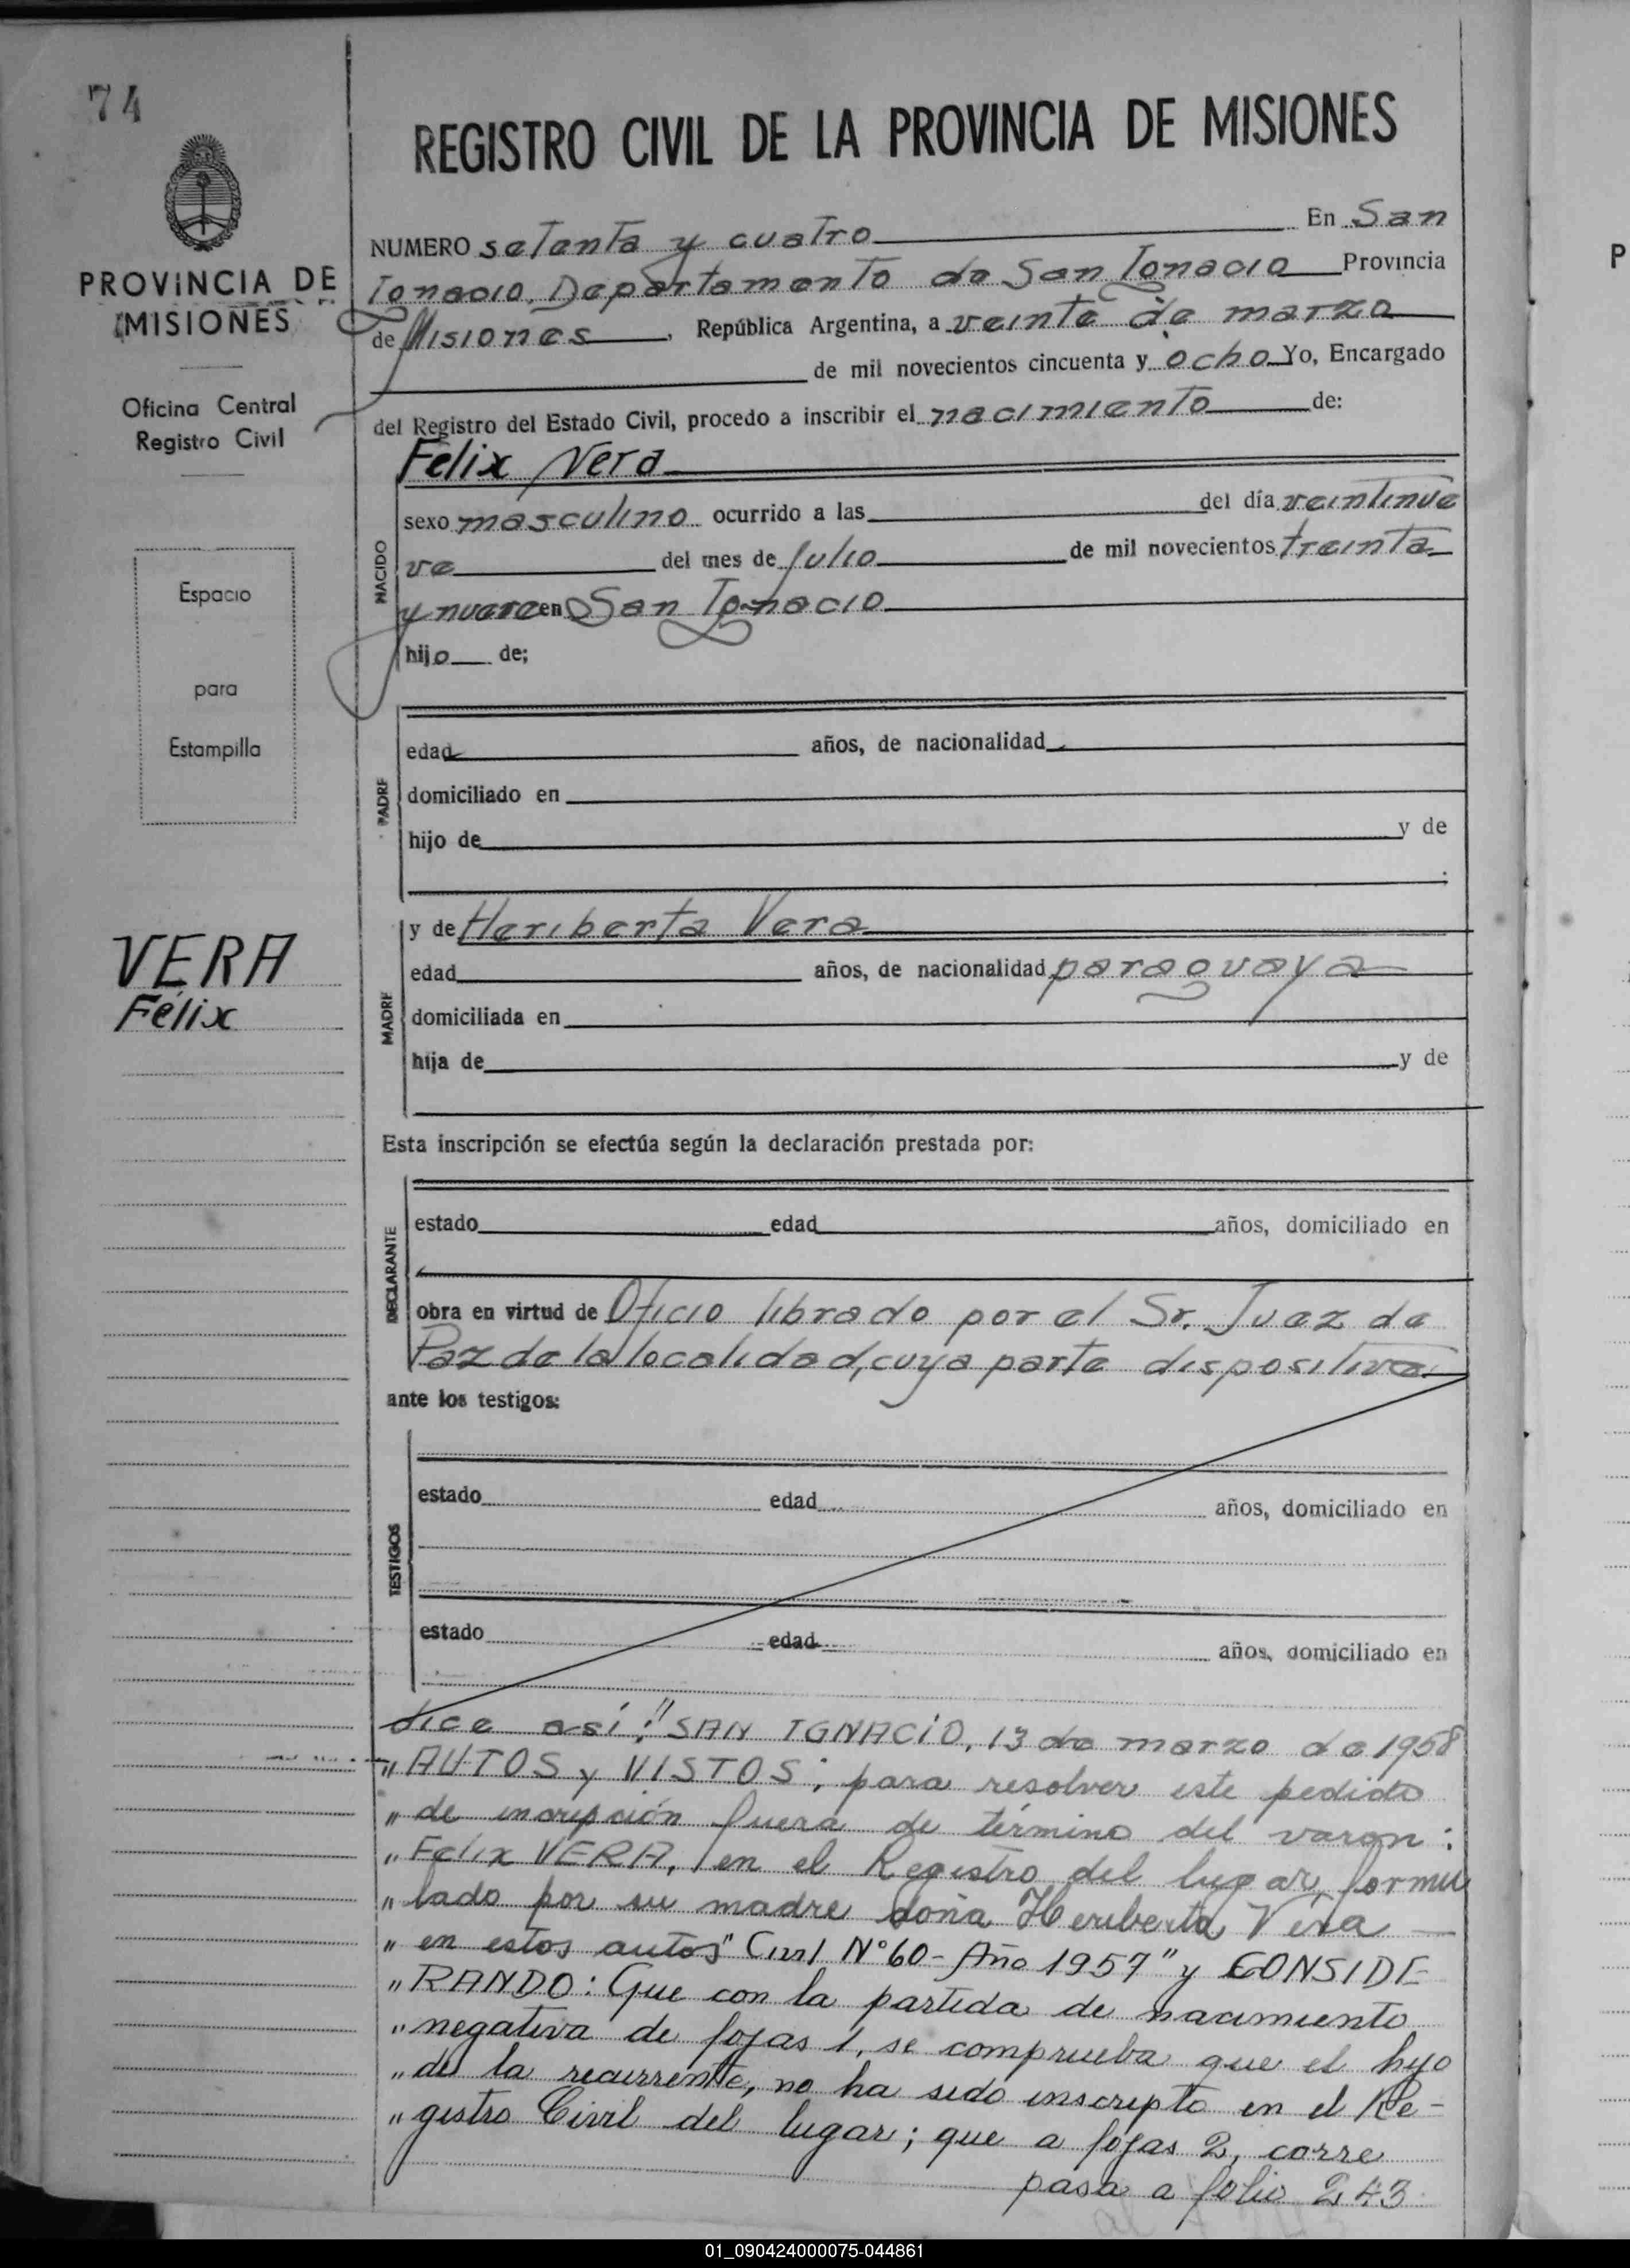 74
REGISTRO CIVIL DE LA PROVINCIA DE MISIONES
PROVINCIA DE
MISIONES
Oficina Central
Registro Civil
Espacio
para
Estampilla
VERA
Félix
NUMERO setenta y cuatro En San
Ignacio, Departamento de San Ignacio Provincia
de Misiones, República Argentina, a veinte de marzo
de mil novecientos cincuenta y ocho Yo, Encargado
del Registro del Estado Civil, procedo a inscribir el nacimiento de:
NACIDO
Félix Vera
sexo masculino ocurrido a las del día veintinue
ve del mes de Julio de mil novecientos treinta
y nueve en San Ignacio
hijo de;
PADRE
edad años, de nacionalidad
domiciliado en
hijo de y de
MADRE
y de Heriberta Vera
edad años, de nacionalidad paraguaya
domiciliada en
hija de y de
Esta inscripción se efectúa según la declaración prestada por:
DECLARANTE
estado edad años, domiciliado en
obra en virtud de Oficio librado por el Sr. Juez de
Paz de la localidad, cuya parte dispositiva
ante los testigos:
TESTIGOS
estado edad años, domiciliado en
estado edad años, domiciliado en
dice así: "SAN IGNACIO, 13 de marzo de 1958
"AUTOS y VISTOS; para resolver este pedido
"de incripción fuera de término del varon:
"Felix VERA, en el Registro del lugar, formu
"lado por su madre doña Heriberta Vera
"en estos autos "Civil N° 60 - Año 1957" y CONSIDE
"RANDO: Que con la partida de nacimiento
"negativa de fojas 1, se comprueba que el hijo
"de la recurrente, no ha sido inscripto en el Re-
"gistro Civil del lugar; que a fojas 2, corre
pasa a folio 243
P
01_090424000075-044861